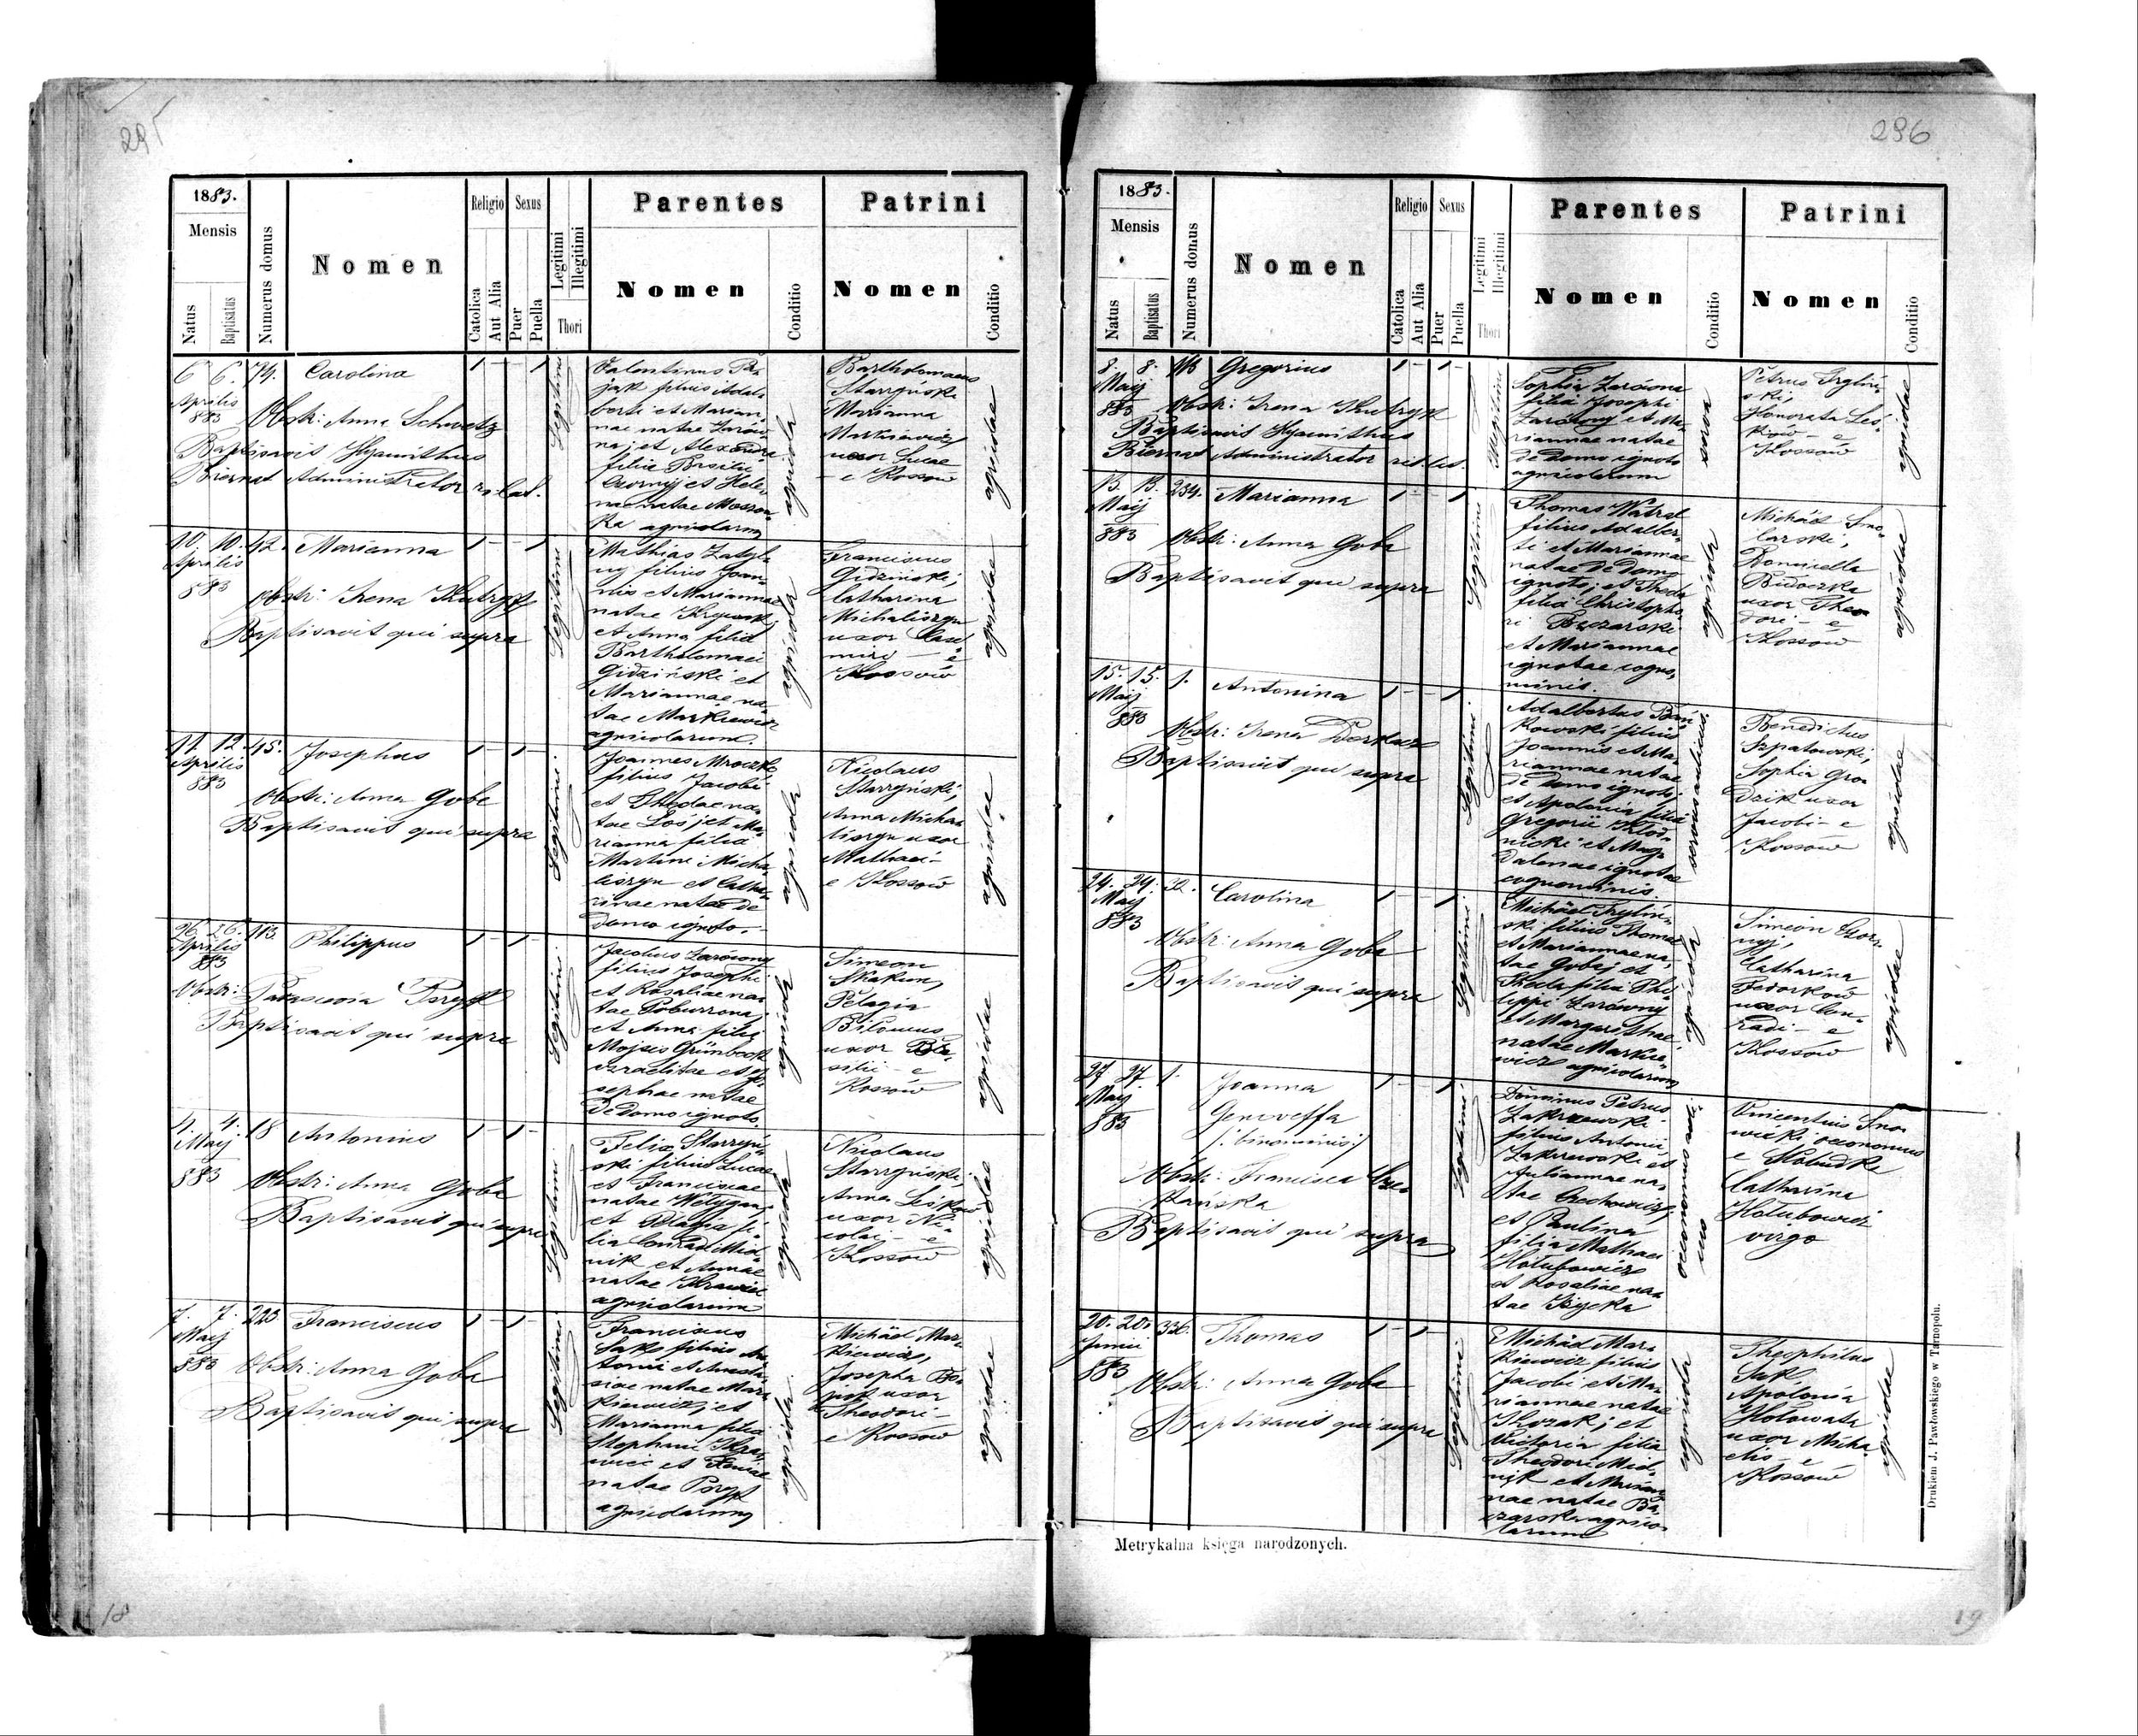 295
1883.
Mensis
Natus
Baptisatus
Numerus domus
Nomen
Religio
Catolica
Aut Alia
Sexus
Puer
Puella
Legitimi
Illegitimi
Thori
Parentes
Nomen
Conditio
Patrini
Nomen
Conditio
6 6. 74. Carolina
Aprilis
883
Obstr: Anna Schwetz
Baptisavit Hyacinthus
Biernat Administrator rit. lat.
Legitimi
filius Adal-
berti et Marian-
nae natae Zarów-
nyj et Alexandra
filia Basilii
Czornyj et Hele-
nae natae
agricolarum
agricola
Bartholomaeus
Starzyński
Marianna
Markiewicz
uxor Lucae
- e Kossów
agricolae
10. 10. 42. Marianna
Aprilis
883
Obstr: Irena
Baptisavit qui supra
Legitimi
Mathias
filius Joan-
nis et Mariannae
natae
et Anna filia
Bartholomaei
Gidziński et
Mariannae na-
tae Markiewicz
agricolarum.
agricola
Franciscus
Gidziński,
Catharina
Michaliszyn
uxor Casi-
miri - e
Kossów
agricolae
11. 12. 45. Josephus
Aprilis
883
Obstr: Anna Goba
Baptisavit qui supra
Legitimi
Joannes Mroczko
filius Jacobi
et Theclae na-
tae Łoś; et Ma-
rianna filia
Martini Micha-
liszyn et Catha-
rinae natae de
domo ignoto.
agricola
Nicolaus
Starzyński,
Anna Micha-
liszyn uxor
Mathaei -
e Kossów
agricolae
26. 26. 113. Philippus
Aprilis
883
Obstr:
Baptisavit qui supra
Legitimi
Jacobus Zarówny
filius Josephi
et Rosaliae na-
tae
et Anna filia
Mojsis Grünbock
israelitae et Jo-
sephae natae
de domo ignoto.
agricola
Simeon
Skakun,
Pelagia
uxor Ba-
silii - e
Kossów
agricolae
4. 4. 18 Antonius
Maij
883
Obstr: Anna Goba
Baptisavit qui supra
Legitimi
Felix Starzyń-
ski filius Lucae
et Franciscae
natae
et Pelagia fi-
lia Conradi Mid-
nik et Annae
natae
agricolarum
agricola
Nicolaus
Starzyński,
Anna Leśków
uxor Ni-
colai - e
Kossów
agricolae
7. 7. 220 Franciscus
Maij
883
Obstr: Anna Goba
Baptisavit qui supra
Legitimi
Franciscus
Sak filius An-
tonii et Anasta-
siae natae Mar-
kiewicz; et
Marianna filia
Stephani
et
natae
agricolarum
agricola
Michäel Mar-
kiewicz,
Josepha
uxor
Theodori -
e Kossów
agricolae
18
296
1883.
Mensis
Natus
Baptisatus
Numerus domus
Nomen
Religio
Catolica
Aut Alia
Sexus
Puer
Puella
Legitimi
Illegitimi
Thori
Parentes
Nomen
Conditio
Patrini
Nomen
Conditio
8. 8. Gregorius
Maij
883
Obstr: Irena
Baptisavit Hyacinthus
Biernat Administrator rit. lat.
Illegitimi
Sophia Zarówna
filia Josephi
Zarówny et Ma-
riannae natae
de domo ignoto
agricolarum
Petrus
Honorata Leś-
ków - e
Kossów
agricolae
13. 13. 234. Marianna
Maij
883
Obstr: Anna Goba
Baptisavit qui supra
Legitimi
Thomas
filius Adalber-
ti et Mariannae
natae de domo
ignoto; et Thecla
filia Christopho-
ri Baczarski
et Mariannae
ignotae cogno-
minis.
agricola
Michäel Smo-
larski,
uxor Theo-
dori - e
Kossów
agricolae
15. 15. 1. Antonina
Maij
883
Obstr: Irena Derkacz
Baptisavit qui supra
Legitimi
Adalbertus
filius
Joannis et Ma-
riannae natae
de domo ignoto;
et Apolonia filia
Gregorii
et Mag-
dalenae ignotae
cognominis.
servus aulicus
Benedictus
Szpatowski,
Sophia Gro-
dzik uxor
Jacobi - e
Kossów
agricolae
24. 24. 32. Carolina
Maij
883
Obstr: Anna Goba
Baptisavit qui supra
Legitimi
Michäel
filius Thomae
et Mariannae na-
tae Goba; et
Thecla filia Phi-
lippi Zarówny
et Margarithae
natae Markie-
wicz agricolarum
agricola
Simeon Czor-
nyj,
Catharina
Fedorków
uxor Con-
radi - e
Kossów
agricolae
27 27. 1. Joanna
Maij
883
Genoveffa
/: binominis :/
Obstr: Francisca
Baptisavit qui supra
Legitimi
Dominus Petrus
Zakrzewski
filius Antonii
Zakrzewski et
Juliannae na-
tae
et Paulina
filia Mathaei
Hołubowicz
et Rosaliae na-
tae
oeconomus
Vincentius
oeconomus
e
Catharina
Hołubowicz
virgo
20. 20. 326. Thomas
Junii
883
Obstr: Anna Goba
Baptisavit qui supra
Legitimi
Michäel Mar-
kiewicz filius
Jacobi et Ma-
riannae natae
Kozak; et
Victoria filia
Theodori Mid-
nik et Marian-
nae natae Ba-
czarski agrico-
larum
agricola
Theophilus
Sak
Apolonia
uxor Micha-
elis - e
Kossów
agricolae
Metrykalna księga narodzonych.
Drukiem J. Pawłowskiego w Tarnopolu.
19